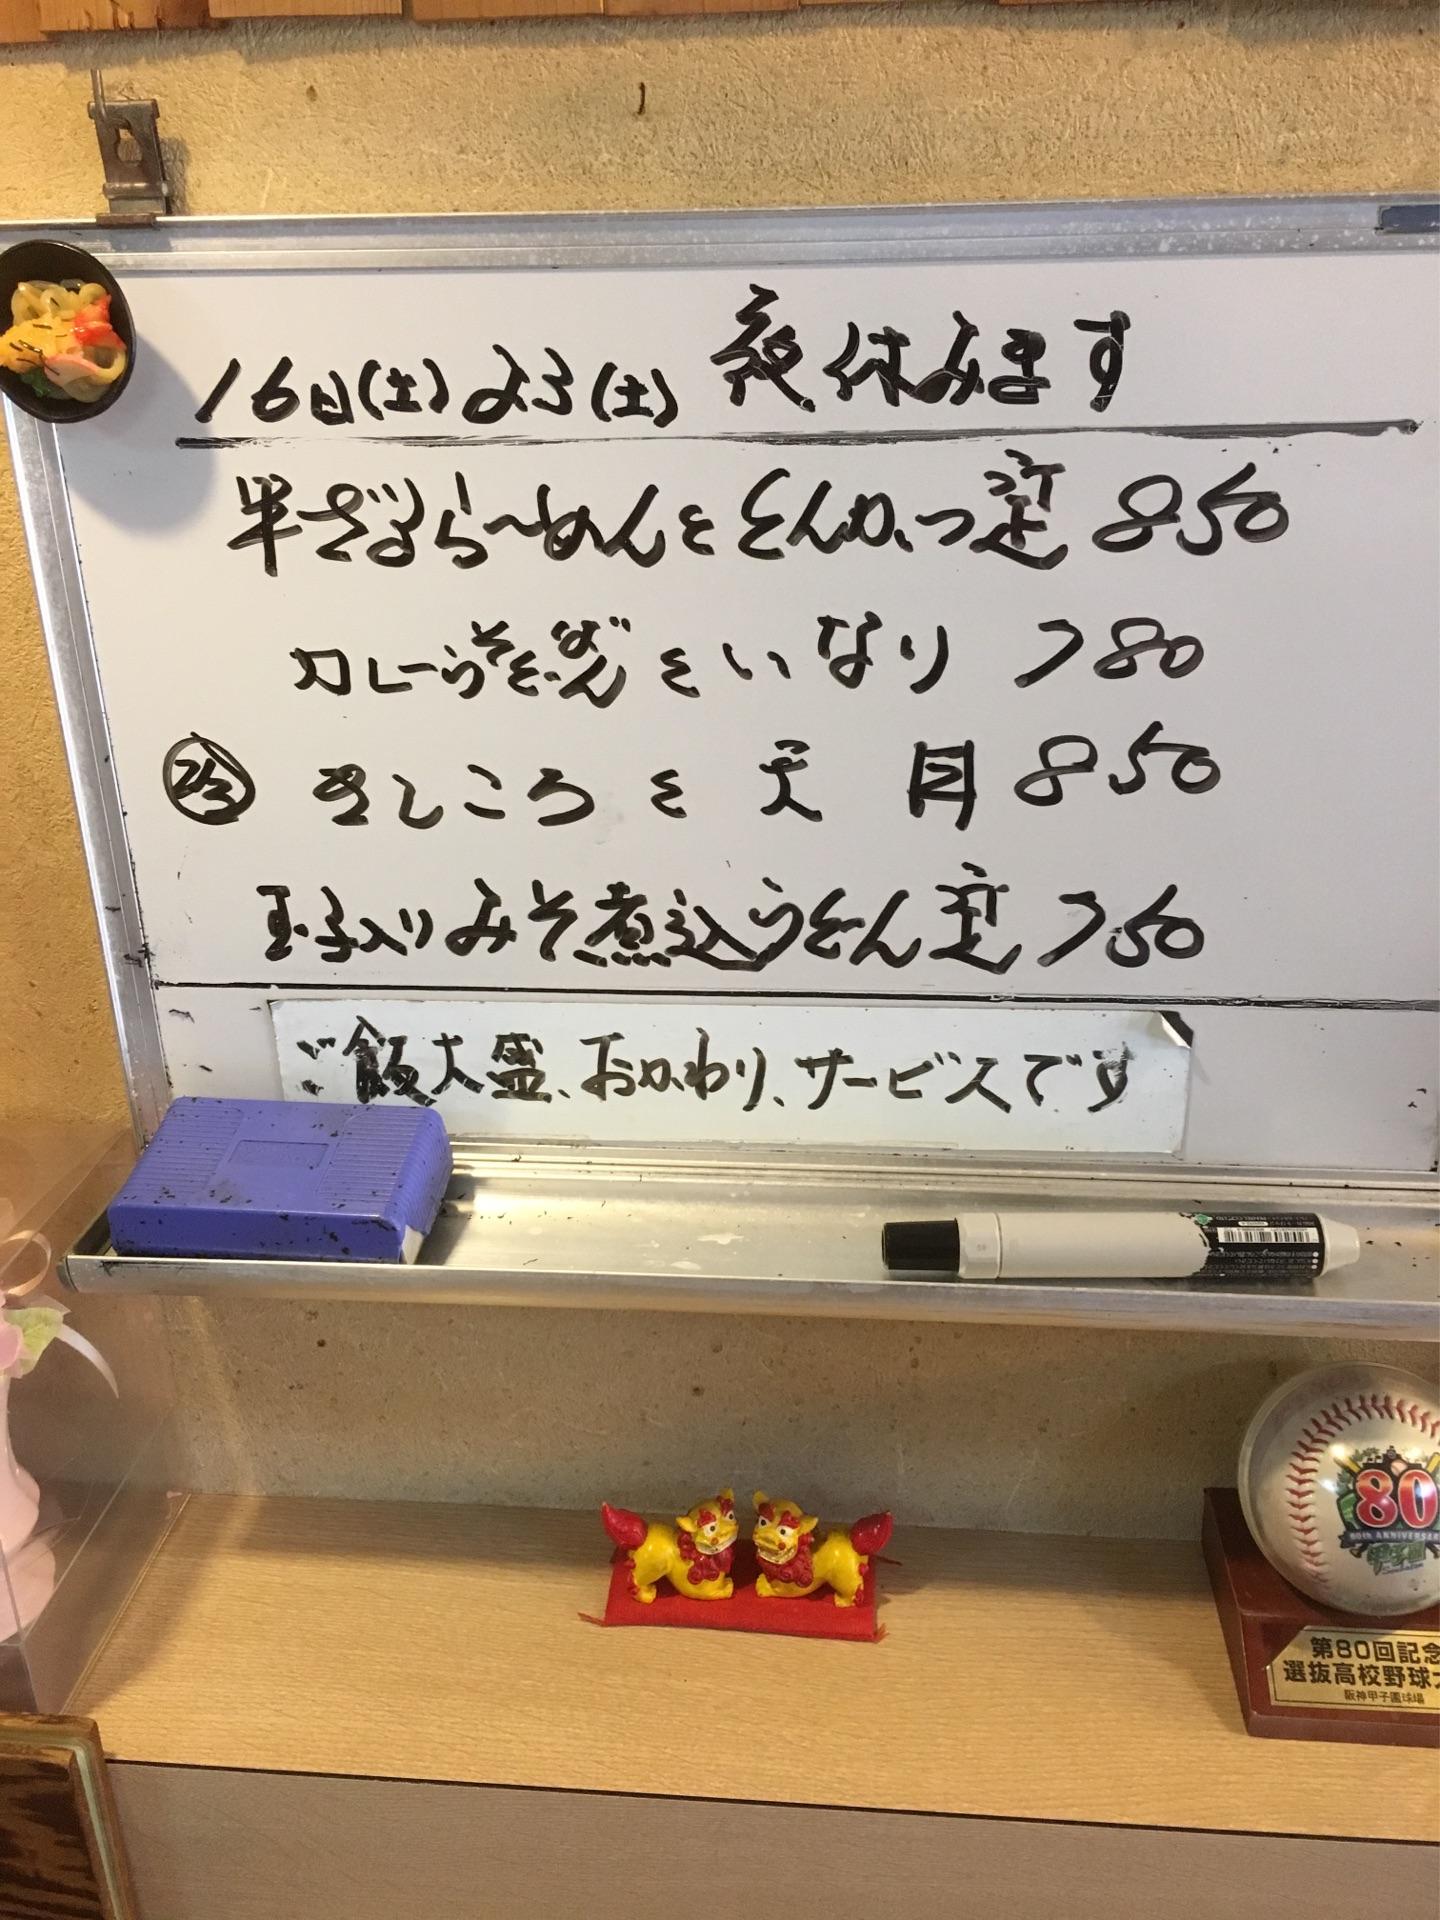 16日(土)23(土)夜休みます
半ざるらーめんととんかつ定 850
カレーうどん と いなり 780
冷 きしころ と 天丼 850
玉子入りみそ煮込うどん定 750
ご飯大盛、おかわり、サービスです
80
80th ANNIVERSARY
甲子園
第80回記念
選抜高校野球大
阪神甲子園球場